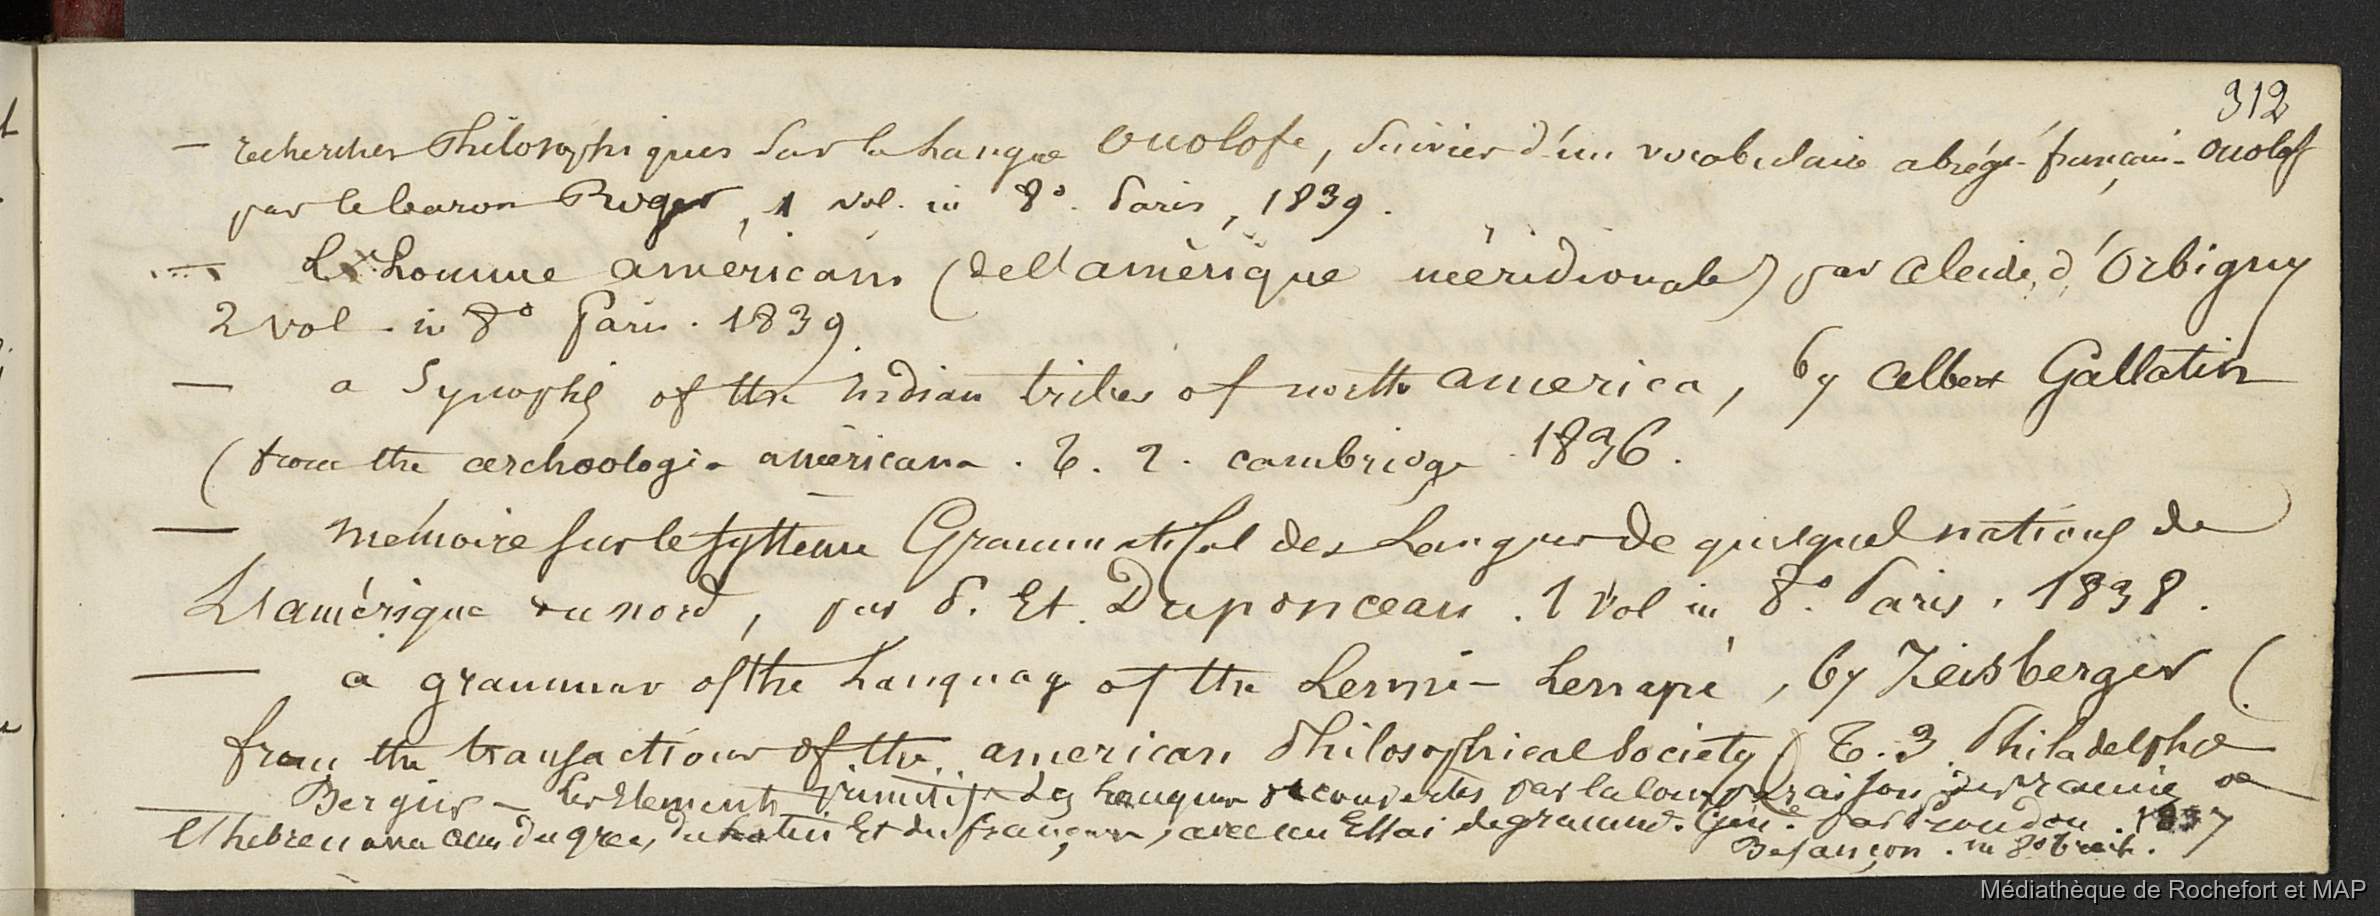 312
— recherches Philosophiques Sur la Langue Ouolofe, Suivies d'un vocabulaire abrégé français-Ouolof
par le baron Roger, 1 vol. in 8°. Paris, 1839.
— L'homme américain (de l'amérique méridionale) par alcide d'Orbigny
2 vol. in 8° Paris. 1839.
— a Synopsis of the indian tribes of north america, by albert Gallatin
(from the archœologia américana. T. 2. cambridge. 1836.
— mémoire sur le système Grammatical des Langues de quelques nations de
L'amérique du nord, par P. Et. Duponceau. 1 vol in 8°. Paris. 1838.
— a grammar of the Languag of the Lenni-Lenapé, by Zeisberger (
from the transactions of the american Philosophical Society) T. 3. Philadelphie
— Bergier — Les Elements primitifs des Langues découvertes par la comparaison des racines de
l'hebreu avec celles du grec, du latin Et du français, avec un Essai de gramm. Gén.le par Proudon. 1837
Besançon. in 8° broch.
Médiathèque de Rochefort et MAP